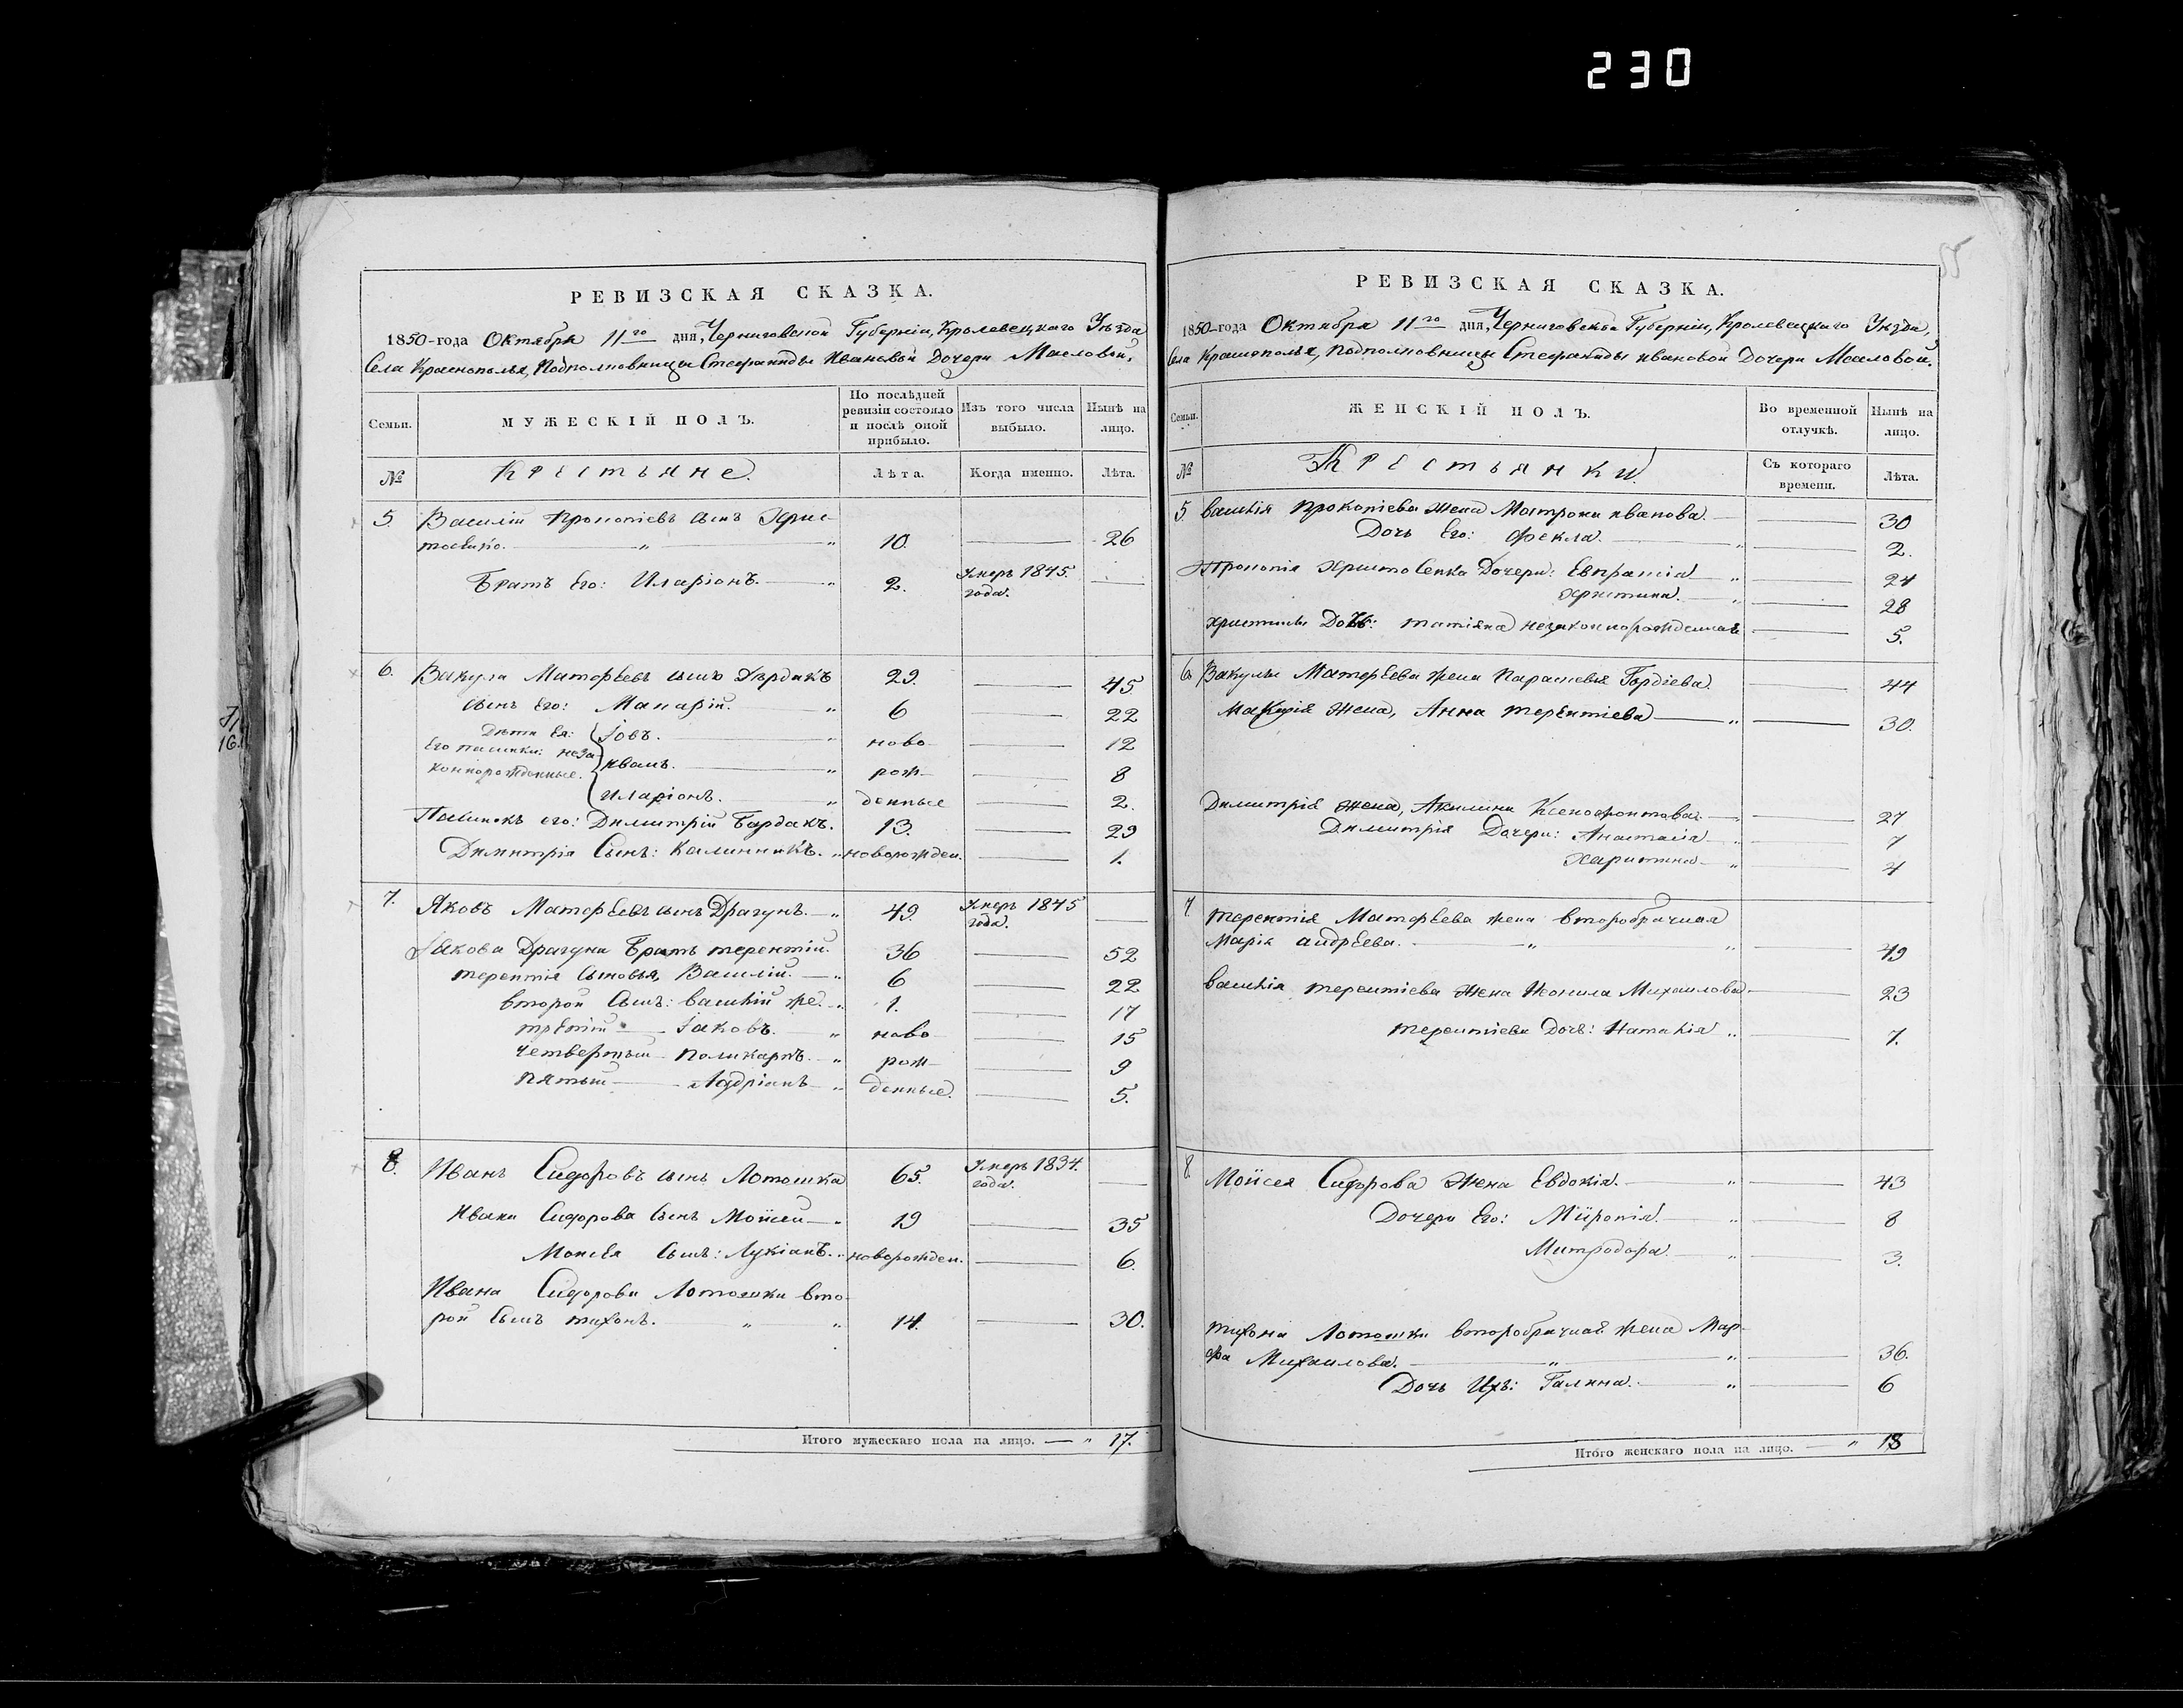 230
55
РЕВИЗСКАЯ СКАЗКА.
1850-года Октября 11го дня, Черниговской Губерніи, Кролевецкаго Уѣзда
Села Краснополья, Подполковницы Стефаниды Ивановой Дочери Масловой,
Семьи.
МУЖЕСКІЙ ПОЛЪ.
По послѣдней
ревизіи состояло
и послѣ оной
прибыло.
Изъ того числа
выбыло.
Нынѣ на
лицо.
№
Крестьяне.
Лѣта.
Когда именно.
Лѣта.
5. Василій Прокопіевъ сынъ Хрис-
товенко. 10. 26
Братъ Его: Иларіонъ. 2. Умеръ 1845.
года.
6. Вакула Матфѣевъ сынъ 29. 45
сынъ Его: Макарій. 6 22
Дѣти Ея: Іовъ. ново 12
Его пасынки: неза-
Иванъ. рож- 8
коннорожденные.
Иларіонъ. денные 2.
Пасынокъ его: Димитрій Бардакъ. 13. 29
Димитрія Сынъ: Калинникъ. новорожден. 1.
7. Яковъ Матфѣевъ сынъ Драгунъ. 49. Умеръ 1845
года.
Іакова Драгуна Братъ терентій. 36 52
терентія Сыновья, Василій. 6 22
второй Сынъ: василій же. 1. 17
третій Іаковъ. ново 15
четвертый Поликарпъ. рож- 9
пятый Андріанъ денные. 5.
8. Иванъ Сидоровъ сынъ Лотошка 65. Умеръ 1834.
года.
Ивана Сидорова Сынъ Моисей 19 35
Моисея Сынъ: Лукіанъ. новорожден. 6.
Ивана Сидорова Лотошки вто-
рой Сынъ тихонъ. 14. 30.
Итого мужескаго пола на лицо. 17.
РЕВИЗСКАЯ СКАЗКА.
1850-года Октября 11го дня, Черниговской Губерніи, Кролевецкаго Уѣзда,
Села Краснополья, Подполковницы Стефаниды ивановой Дочери Масловой.
Семьи.
ЖЕНСКІЙ ПОЛЪ.
Во временной
отлучкѣ.
Нынѣ на
лицо.
№
Крестьянки.
Съ котораго
времени.
Лѣта.
5. василія Прокопіева жена Матрона иванова. 30
Дочь Его: Фекла. 2.
Прокопія Христовенка Дочери: Евпраксія 24
Христина. 28
христины Дочь: татіяна незаконнорожденная 5.
6. Вакулы Матфѣева жена Параскевія Гордіева. 44
Макарія жена, Анна терентіева 30.
Димитрія жена, Акилина Ксенофонтова. 27
Димитрія Дочери: Анастасія 7
Харитина 4
7. терентія Матфѣева жена второбрачная
Марія андреева. 49
василія терентіева жена Неонила Михаилова 23
терентіева Дочь: Наталія 7.
8. Моисея Сидорова жена Евдокія. 43
Дочери Его: Миропія. 8
Митродора. 3.
тихона Лотошки второбрачная жена Мар-
фа Михаилова. 36.
Дочь Ихъ: Галина. 6
Итого женскаго пола на лицо. 18